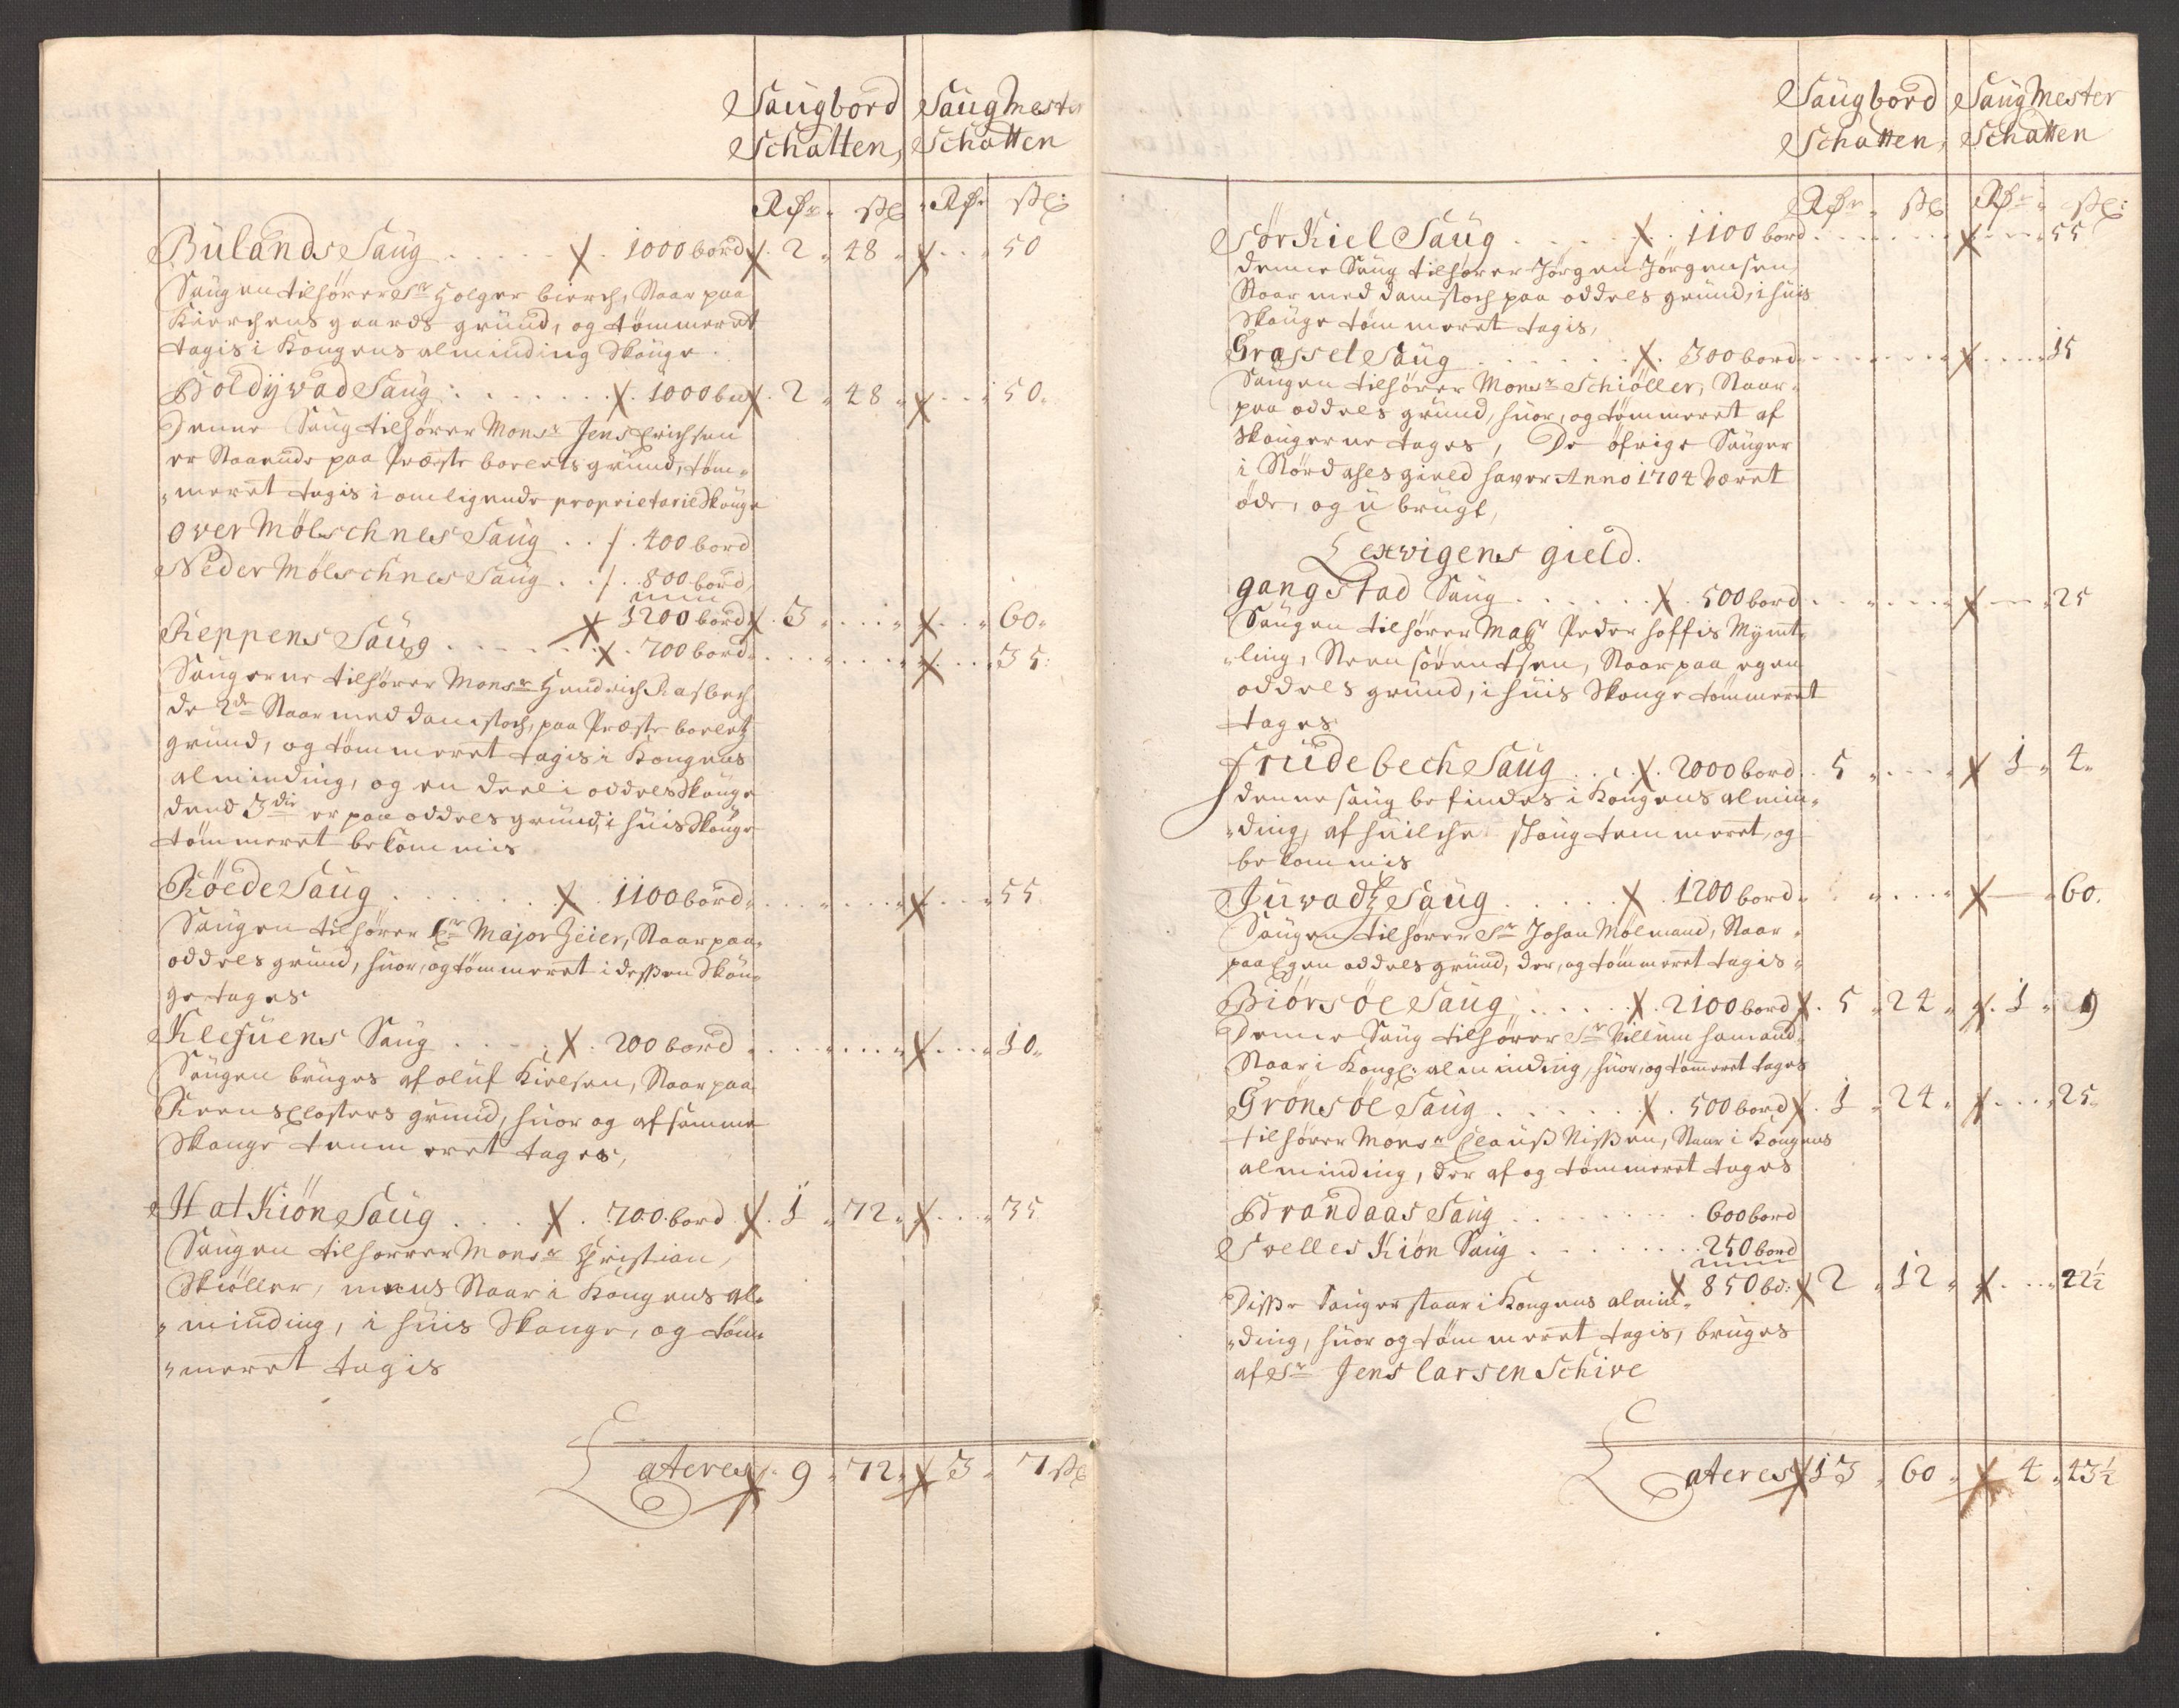 Saugbord Saugmester
Schatten, Schatten
Rdr. ß Rdr ß:
Bulands Saug . . . . . 1000 bord 2 48 50
Saugen tilhører Sr Holger bierch, Staar paa
Kierchens gaards grund, og tømmeret
tagis i Kongens alminding Skouge.
Holdijvad Saug: . . . . . . 1000 bd 2 48 50.
Denne Saug tilhører Monsr Jens Erichsen
er Staaende paa Præste boelets grund, tøm-
meret tagis i omligende proprietarie Skouge
over Mølschnes Saug . . 400 bord
Neder Mølschnes Saug . . 800 bord
1200 bord 3 60
Reppens Saug . . . . . . 700 bord 35:
Saugerne tilhører Monsr Hendrich Rasbech
de 2de Staar med damstoch, paa Præste boeletz
grund, og tømmeret tagis i Kongens
alminding, og en deel i oddels Skouge
dend 3die er paa oddels grund, i huis Skouge
tømmeret bekommis
Röede Saug . . . . . . 1100 bord 55.
Saugen tilhører Hr Major Zeier, Staar paa
oddels grund, huor, og tømmeret i dessen Skou-
ge tages
Klefuens Saug . . . . 200 bord 10.
Saugen bruges af oluf Kielsen, Staar paa
Reens Closters grund, huor og af samme
Skouge tømmeret tages,
Hatkiön Saug . . . . 700 bord 1 72 35
Saugen tilhører Monsr Christian
Skiöller, mens Staar i Kongens al-
minding, i huis Skouge, og tøm-
meret tagis
Lateres 9 72 3 7 ß
Saugbord Saugmester
Schatten, Schatten
Rdr. ß Rdr ß:
Sør Kiel Saug . . . . . 1100 bord 55
denne Saug tilhører Jørgen Jørgensen
Staar med damstoch paa oddels grund, i huis
Skouge tømmeret tagis,
Grassel Saug . . . . . . 300 bord 15
Saugen tilhører Monsr Schiöller, Staar
paa oddels grund, huor, og tømmeret af
Skougerne tages, De øfrige Sauger
i Størdahls gield haver Anno 1704 været
øde, og u brugt,
Lexvigens gield.
gangstad Saug . . . . . . 500 bord 25
Saugen tilhører Peder hoffis Mÿnt-
ling, Steen sørentsen, Staar paa egen
oddels grund, i huis Skouge tømmeret
tages
frudebech Saug . . . 2000 bord 5 1 4
denne saug befindes i Kongens almin-
ding, af huilche skoug tømmeret, og
bekommis
Juvadtz Saug . . . . . 1200 bord 60.
Saugen tilhører Sr Johan Mølmand, Staar
paa Egen oddels grund, der, og tømmeret tagis
Biörsöe Saug . . . . . 2100 bord 5 24 1 9
Denne Saug tilhører Sr Villum hamand
Staar i Kongl: alminding, huor, og tømmeret tages
Grönsöe Saug . . . . . . 500 bord 1 24 25
tilhører Monsr Clauß Nißen, Staar i Kongens
alminding, der af og tømmeret tages
Brandaas Saug . . . . . . . . 600 bord
Svelles Kiön Saug . . . . . . . . 250 bord
850 bd: 2 12 22½
Diße Sauger staar i Kongens almin-
ding, huor og tømmeret tagis, bruges
af Sr Jens larsen Schive
Lateres 13 60 4 43½